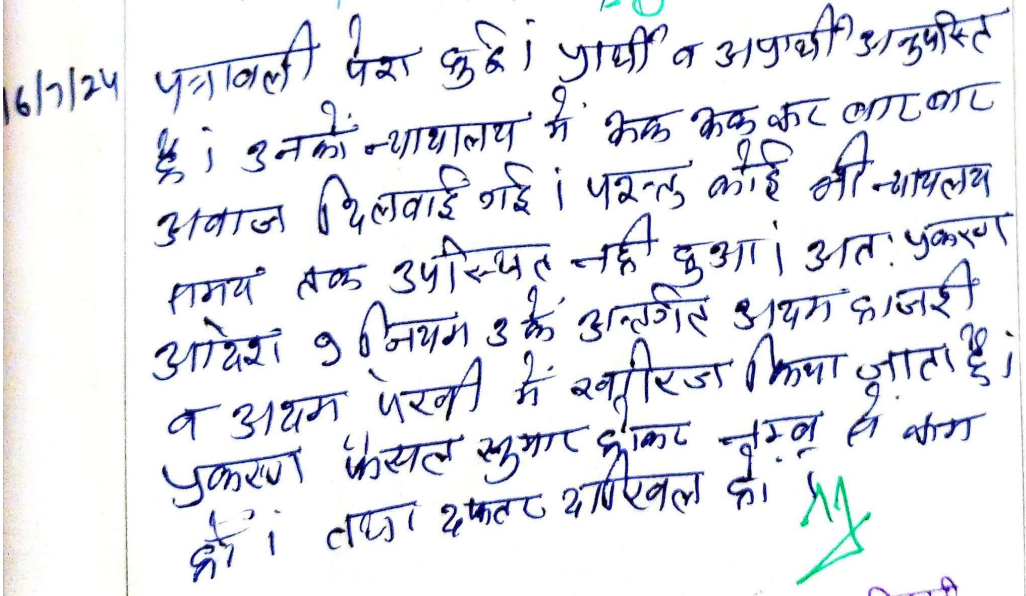 16/7/24 पत्रावली पेश हुई। प्रार्थी व अप्रार्थी अनुपस्थित
है। उनको न्यायालय में रूक रूक कर बार बार
आवाज दिलवाई गई। परन्तु कोई भी न्यायलय
समय तक उपस्थित नही हुआ। अतः प्रकरण
आदेश 9 नियम 3 के अन्तर्गत अदम हाजरी
व अदम पेरवी में खारिज किया जाता है।
प्रकरण फैसल सुमार होकर नम्बर से कम
हो। तथा दफ्तर दाखिल हो।